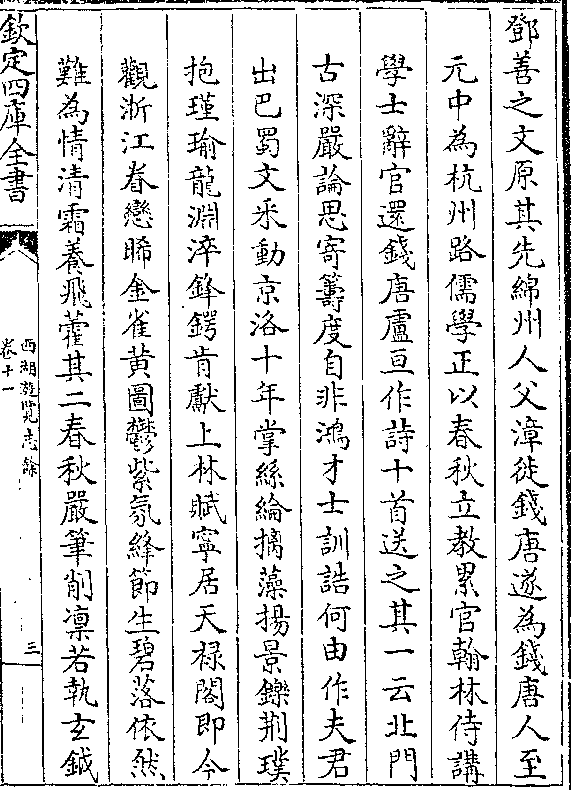 鄧善之文原其先綿州人父漳徙錢唐遂為錢唐人至
元中為杭州路儒學正以春秋立教累官翰林侍講
學士辭官還錢唐盧亘作詩十首送之其一云北門
古深嚴論思寄籌度自非鴻才士訓誥何由作夫君
出巴蜀文采動京洛十年掌絲綸摛藻揚景鑠荆璞
抱瑾瑜龍淵淬鋒鍔肯獻上林賦寧居天禄閣即今
觀浙江眷戀晞金雀黄圖鬱紫氛絳節生碧落依然
難為情清霜養飛藿其二春秋嚴筆削凛若執玄鉞
欽定四庫全書
西湖遊覽志餘
卷十一
三